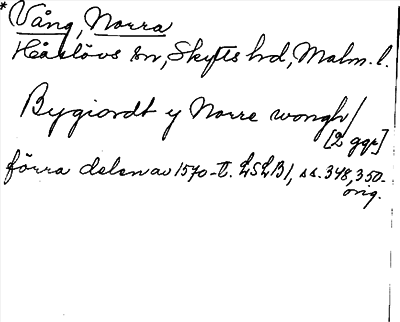 * Vång, Norra
Håslövs sn, Skytts hd, Malm. l.
Bygiordt y Norre wongh/
[2 ggr]
förra delen av 1570-t. LSLB1, ss. 348, 350.
orig.